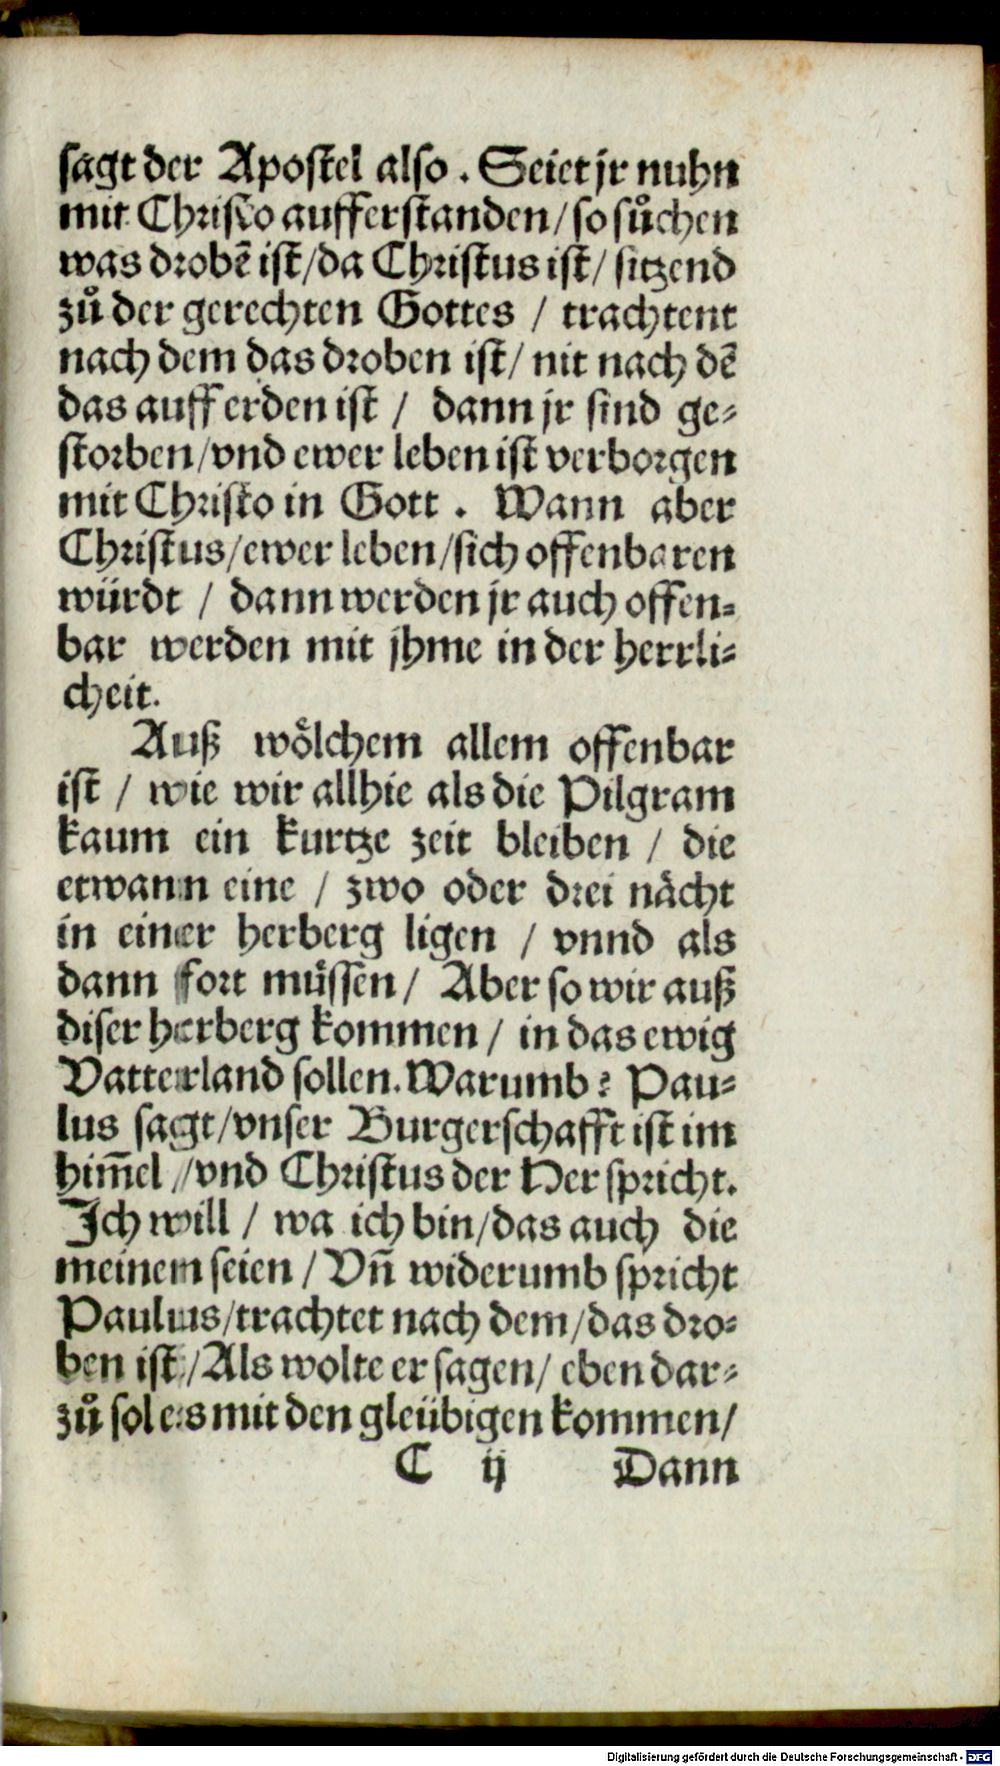 sagt der Apostel also . Seiet jr nuhn
mit Christo aufferstanden / so sůchen
was drobē ist / da Christus ist / sitzend
zů der gerechten Gottes / trachtent
nach dem das droben ist / nit nach dē
das auff erden ist / dann jr sind ge⸗
storben / vnd ewer leben ist verborgen
mit Christo in Gott . Wann aber
Christus / ewer leben / sich offenbaren
würdt / dann werden jr auch offen⸗
bar werden mit jhme in der herrli⸗
cheit.
Auß wölchem allem offenbar
ist / wie wir allhie als die Pilgram
kaum ein kurtze zeit bleiben / die
etwann eine / zwo oder drei nächt
in einer herberg ligen / vnnd als
dann fort müssen / Aber so wir auß
diser herberg kommen / in das ewig
Vatterland sollen. Warumb ? Pau⸗
lus sagt / vnser Burgerschafft ist im
him̄el / vnd Christus der Her spricht.
Ich will / wa ich bin / das auch die
meinem seien / Vn̄ widerumb spricht
Paulus / trachtet nach dem / das dro⸗
ben ist / Als wolte er sagen / eben dar⸗
zů sol es mit den gleübigen kommen /
C ij Dann
Digitalisierung gefördert durch die Deutsche Forschungsgemeinschaft - DFG